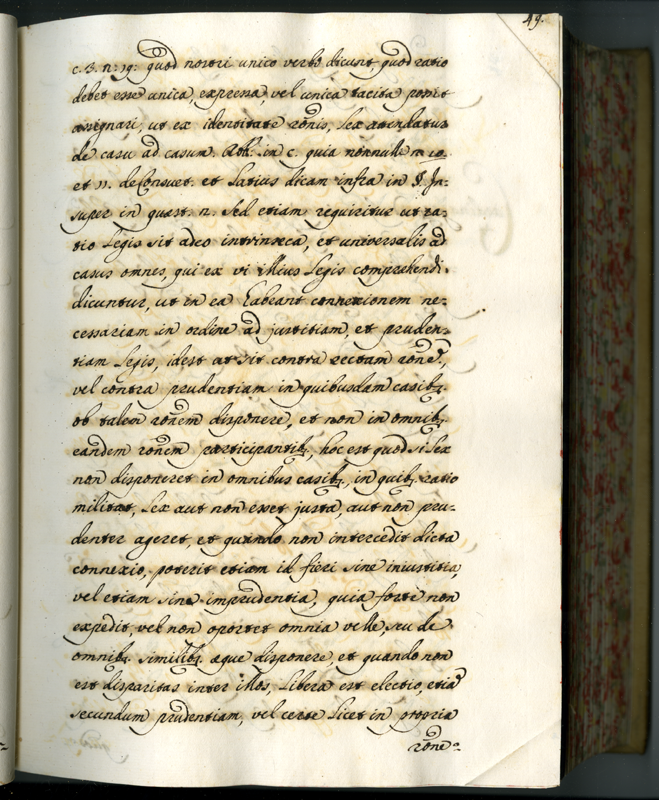 49.
c. 3. n: 19: quod nostri unico verbo dicunt, quod ratio
debet esse unica, expressa, vel unica tacita possit
assignari, ut ex identitate rõnis, lex extendatur
de casu ad casum. Abb. in c. quia nonnulli n. 10.
et 11. de Consuet. et latius dicam infra in §. In-
super in quæst. n. sed etiam requiritur ut ra-
tio legis sit adeo intrinseca, et universalis ad
casus omnes, qui ex vi illius legis comprehendi
dicuntur, ut in ea habeant connexionem ne-
cessariam in ordine ad justitiam, et pruden-
tiam legis, idest ut sit contra rectam rõnẽ,
vel contra prudentiam in quibusdam casibq.
ob talem rõnem disponere, et non in omnibq.
eandem rõnem participantibq, hoc est quod si lex
non disponeret in omnibus casibq., in quibq. ratio
militat, lex aut non esset justa, aut non pru-
denter ageret, et quando non intercedit dicta
connexio, poterit etiam id fieri sine iniustitia,
vel etiam sine imprudentia, quia forte non
expedit, vel non oportet omnia velle, seu de
omnibq. similibq. æque disponere, et quando non
est disparitas inter illos, libera est electio, etiã
secundum prudentiam, vel certe licet in propria
rõne